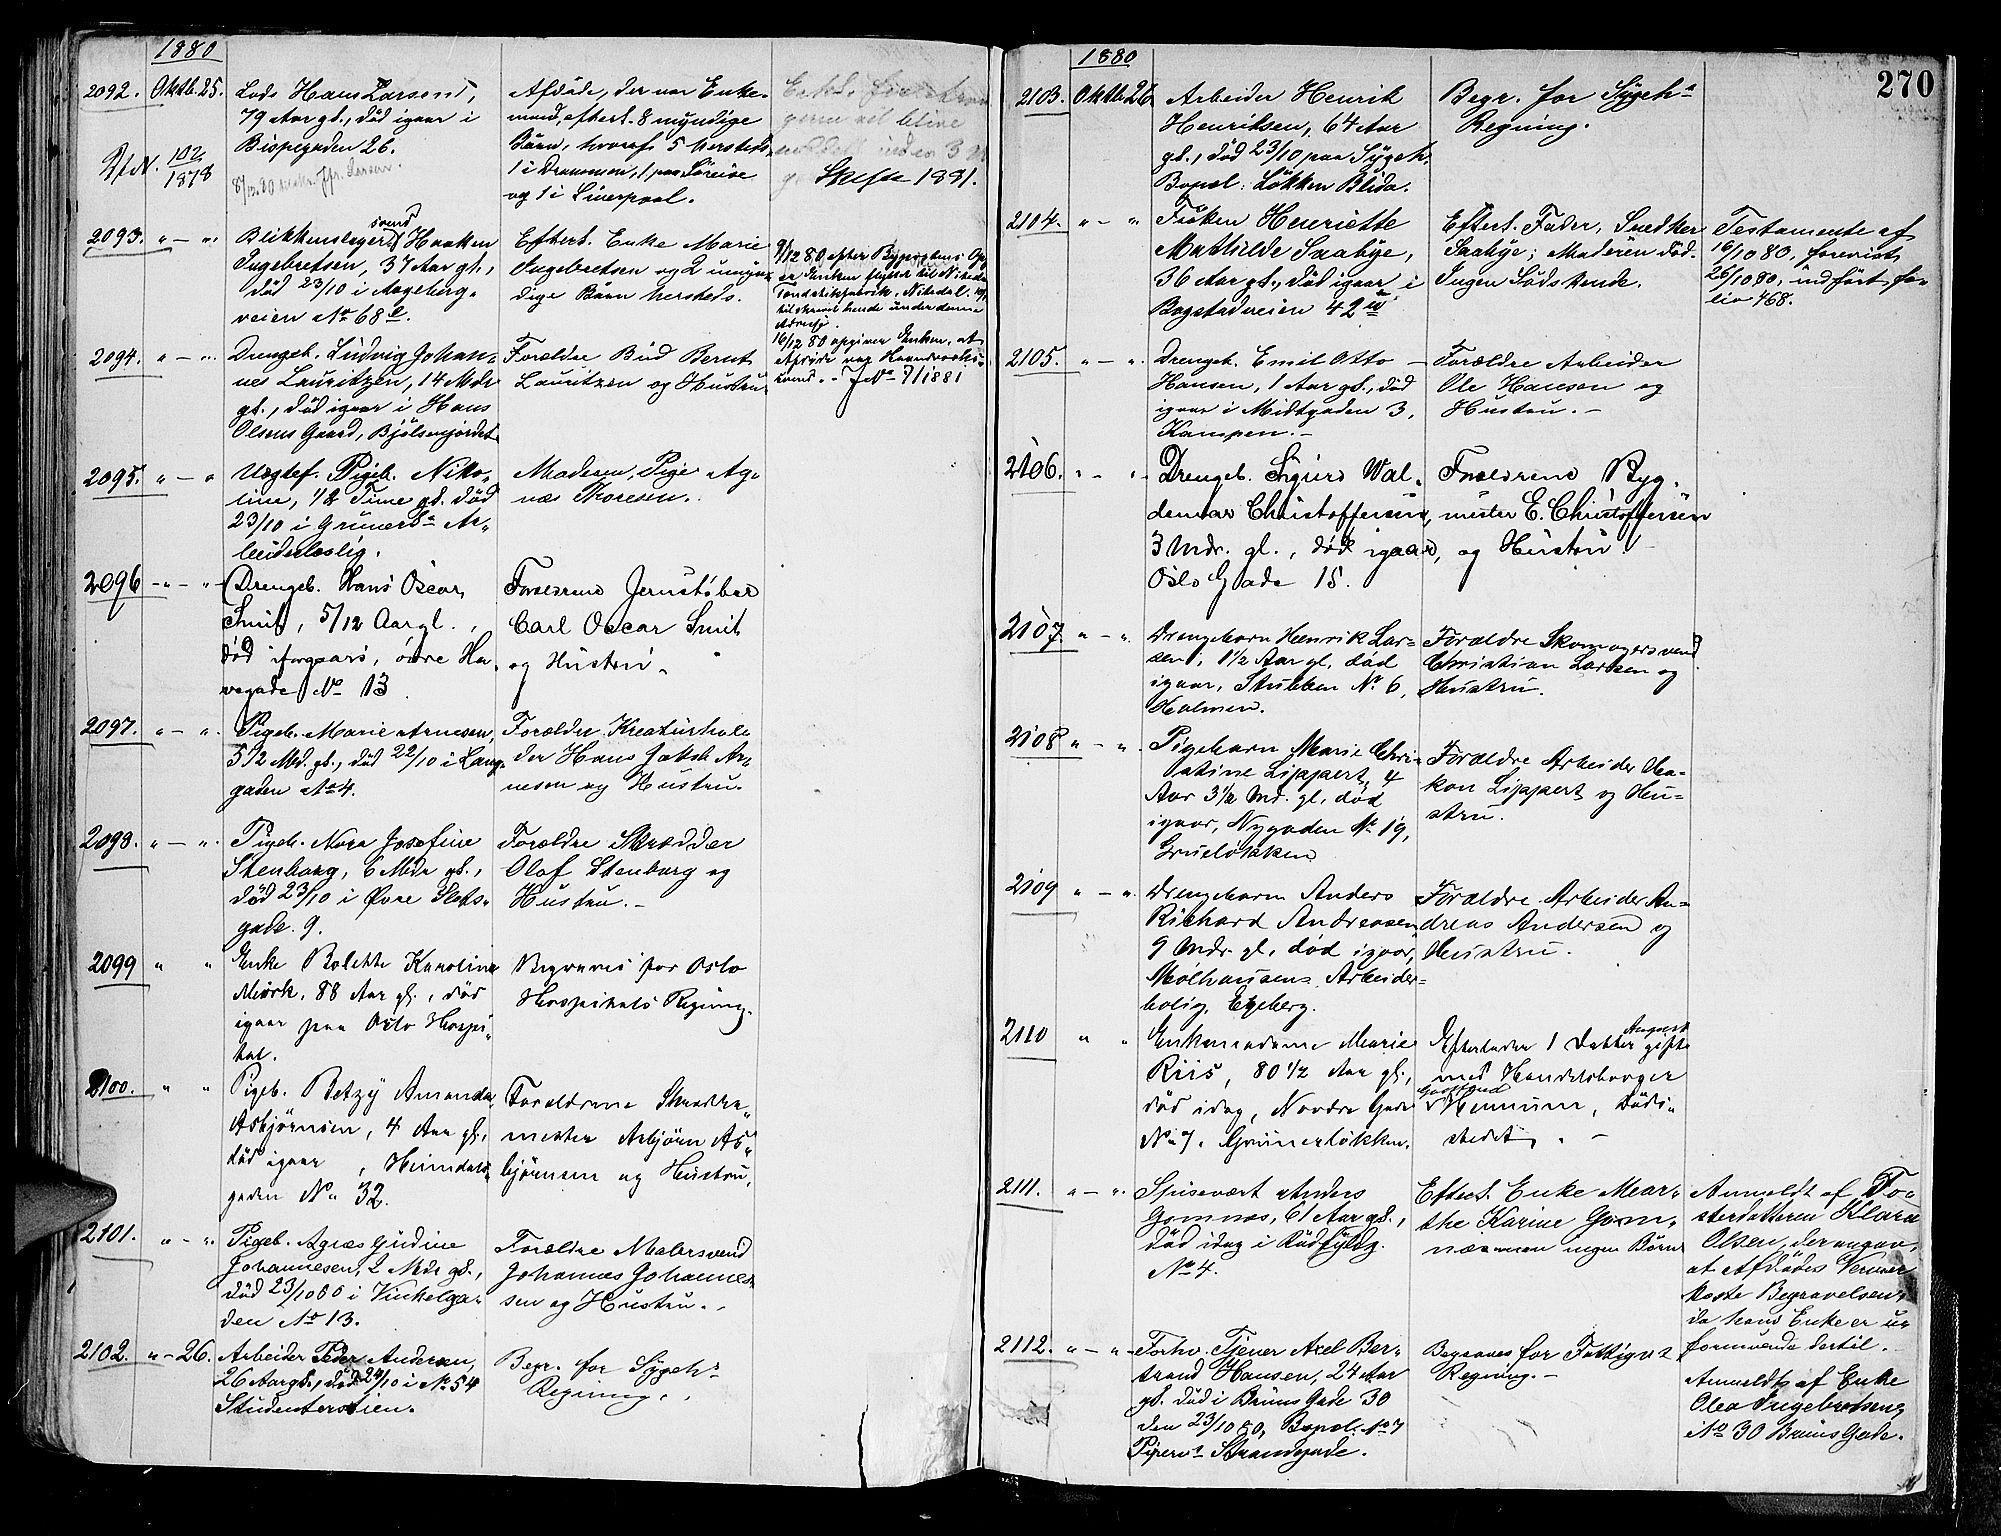 1880
2092. Oktb. 25. Lods Hans Larsen,
79 Aar gl., död igaar i
Bispegaden 26.
102/1878
Afdöde, der var Enke-
mand, efterl. 8 myndige
Börn, hvoraf 5 hersteds,
1 i Drammen, 1 paa
og 1 i Liverpool.
Skifte 1881.
2093. " — " Blikkenslagersvend Haaken
Ingebretsen, 37 Aar gl.,
död 23/10 i Aageberg-
veien No 68 b.
Efterl. Enke Marie
Ingebretsen og 2 umyn-
dige Börn hersteds.
9/12 80 efter
er Enken flyttet til Nitedals
Tændstikfabrik, Nitedal.
tilskrevet hende under denne
Adresse.
16/12 80 opgiver Enken, at
Afdöde var Haandværks-
svend. - J No 7/1881
2094. " — " Drengeb. Ludvig Johan-
nes Lauritzen, 14 Mdr
gl., död igaar i Hans
Olsens Gaard, Bjölsenjordet
Forældre Bud Bernt
Lauritzen og Hustru
2095. " — " Uægtef. Pigeb. Niko-
line, 1/2 Time gl. död
23/10 i Grünerl. Ar-
beiderbolig.
Moderen, Pige Ag-
nes Thoresen.
2096 " — " Drengeb. Hans Oscar
Smit, 5/12 Aar gl.,
död iforgaars, övre Ha-
vegade No 13
Forældrene Jernstöber
Carl Oscar Smit
og Hustru.
2097. " — " Pigeb. Marie Arnesen,
5 1/2 Md. gl., död 22/10 i Lang-
gaden No 4.
Forældre Kreaturhand-
ler Hans Jakob Ar-
nesen og Hustru.
2098. " — " Pigeb. Nora Josefine
Stenborg, 6 Mdr gl.,
död 23/10 i Övre Slots-
gade. 9.
Forældre Skrædder
Olaf Stenborg og
Hustru. —
2099 " " Enke Bolette Karoline
Mörk, 88 Aar gl., död
igaar paa Oslo Hospi-
tal.
Begraves for Oslo
Hospitals Regning.
2100. " " Pigeb. Betzy Amanda
Asbjörnsen, 4 Aar gl.,
död igaar, Heimdals-
gaden No 32.
Forældrene Skrædder-
mester Asbjörn As-
björnsen og Hustru,
2101. " — " Pigeb. Agnes Gudine
Johannesen, 2 Mdr gl.,
död 23/10 80 i Vinkelga-
den No 13.
Forældre Malersvend
Johannes Johannes-
sen og Hustru.
2102. " — 26. Arbeider Peder Andersen,
26 Aar gl., död 24/10 i No 54
Studenterstien.
Begr. for Sygeh.
Regning.
270
1880
2103. Oktb. 26 Arbeider Henrik
Henriksen, 64 Aar
gl., död 23/10 paa Sygeh.
Bopæl: Lökken Blida.
Begr. for Sygeh.
Regning.
2104. " — " Fröken Henriette
Mathilde Saabye,
36 Aar gl., död igaar i
Bogstadveien 42 b
Efterl. Fader, Snedker
Saabye; Moderen död.
Ingen Södskende.
Testamente af
16/10 80, forevist
26/10 80, indfört fo-
lio 468.
2105. " — " Drengeb. Emil Otto
Hansen, 1 Aar gl., död
igaar i Midtgaden 3,
Kampen. —
Forældre Arbeider
Ole Hansen og
Hustru. —
2106. " — " Drengeb. Sigurd Wal-
demar Christoffersen,
3 Mdr. gl., död igaar,
Oslo Gade 15.
Forældrene Byg-
mester E. Christoffersen
og Hustru. —
2107. " — " Drengebarn Henrik Lar-
sen, 1 1/2 Aar gl, död
igaar, Stubben No 6,
Holmen.
Forældre Skomagersvend
Christian Larsen og
Hustru.
2108 " — " Pigebarn Marie Chri-
stine Lippert, 4
Aar 3 1/2 Md. gl, död
igaar, Nygaden No 19,
Gruelökken
Forældre Arbeider Ha-
kon Lippert og Hu-
stru.
2109 " — " Drengebarn Anders
Richard Andreasen,
9 Mdr. gl, död igaar,
Molhausens Arbeider-
bolig, Egeberg.
Forældre Arbeider An-
dreas Andersen og
Hustru.
2110 " " Enkemadame Marie
Riis, 80 1/2 Aar gl.,
död idag, Nordre Gade
No 7, Grünerlökken.
Efterlader 1 Datter gift
med Handelsborger
, Döds-
stedet. —
2111. " — " Spisevært Anders
Gomnæs, 61 Aar gl.,
död idag i Rödfyldg.
No 4.
Efterl. Enke Mar-
the Karine Gom-
næs men ingen Börn
Anmeldt af Sö-
sterdatteren Klara
Olsen, der angav,
at Afdödes Venner
koste Begravelsen,
da hans Enke er u-
formuende dertil.
2112. " — " Forhv. Tjener Axel Ber-
trand Hansen, 24 Aar
gl. död i Bruns Gade 30
den 23/10 80, Bopæl: No 7
Piperv. Strandgade.
Begraves for Fattigv.
Regning. —
Anmeldt af Enke
Olea Ingebretsen,
No 30 Bruns Gade.